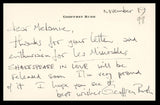 GEOFFREY RUSH
November 59
99
Dear Melanie,
Thanks for your letter and
enthusiasm for Les Misérables
SHAKESPEARE IN LOVE will be
released soon I'm very proud
of it I hope you enjoy it
best wishes Geoffrey Rush